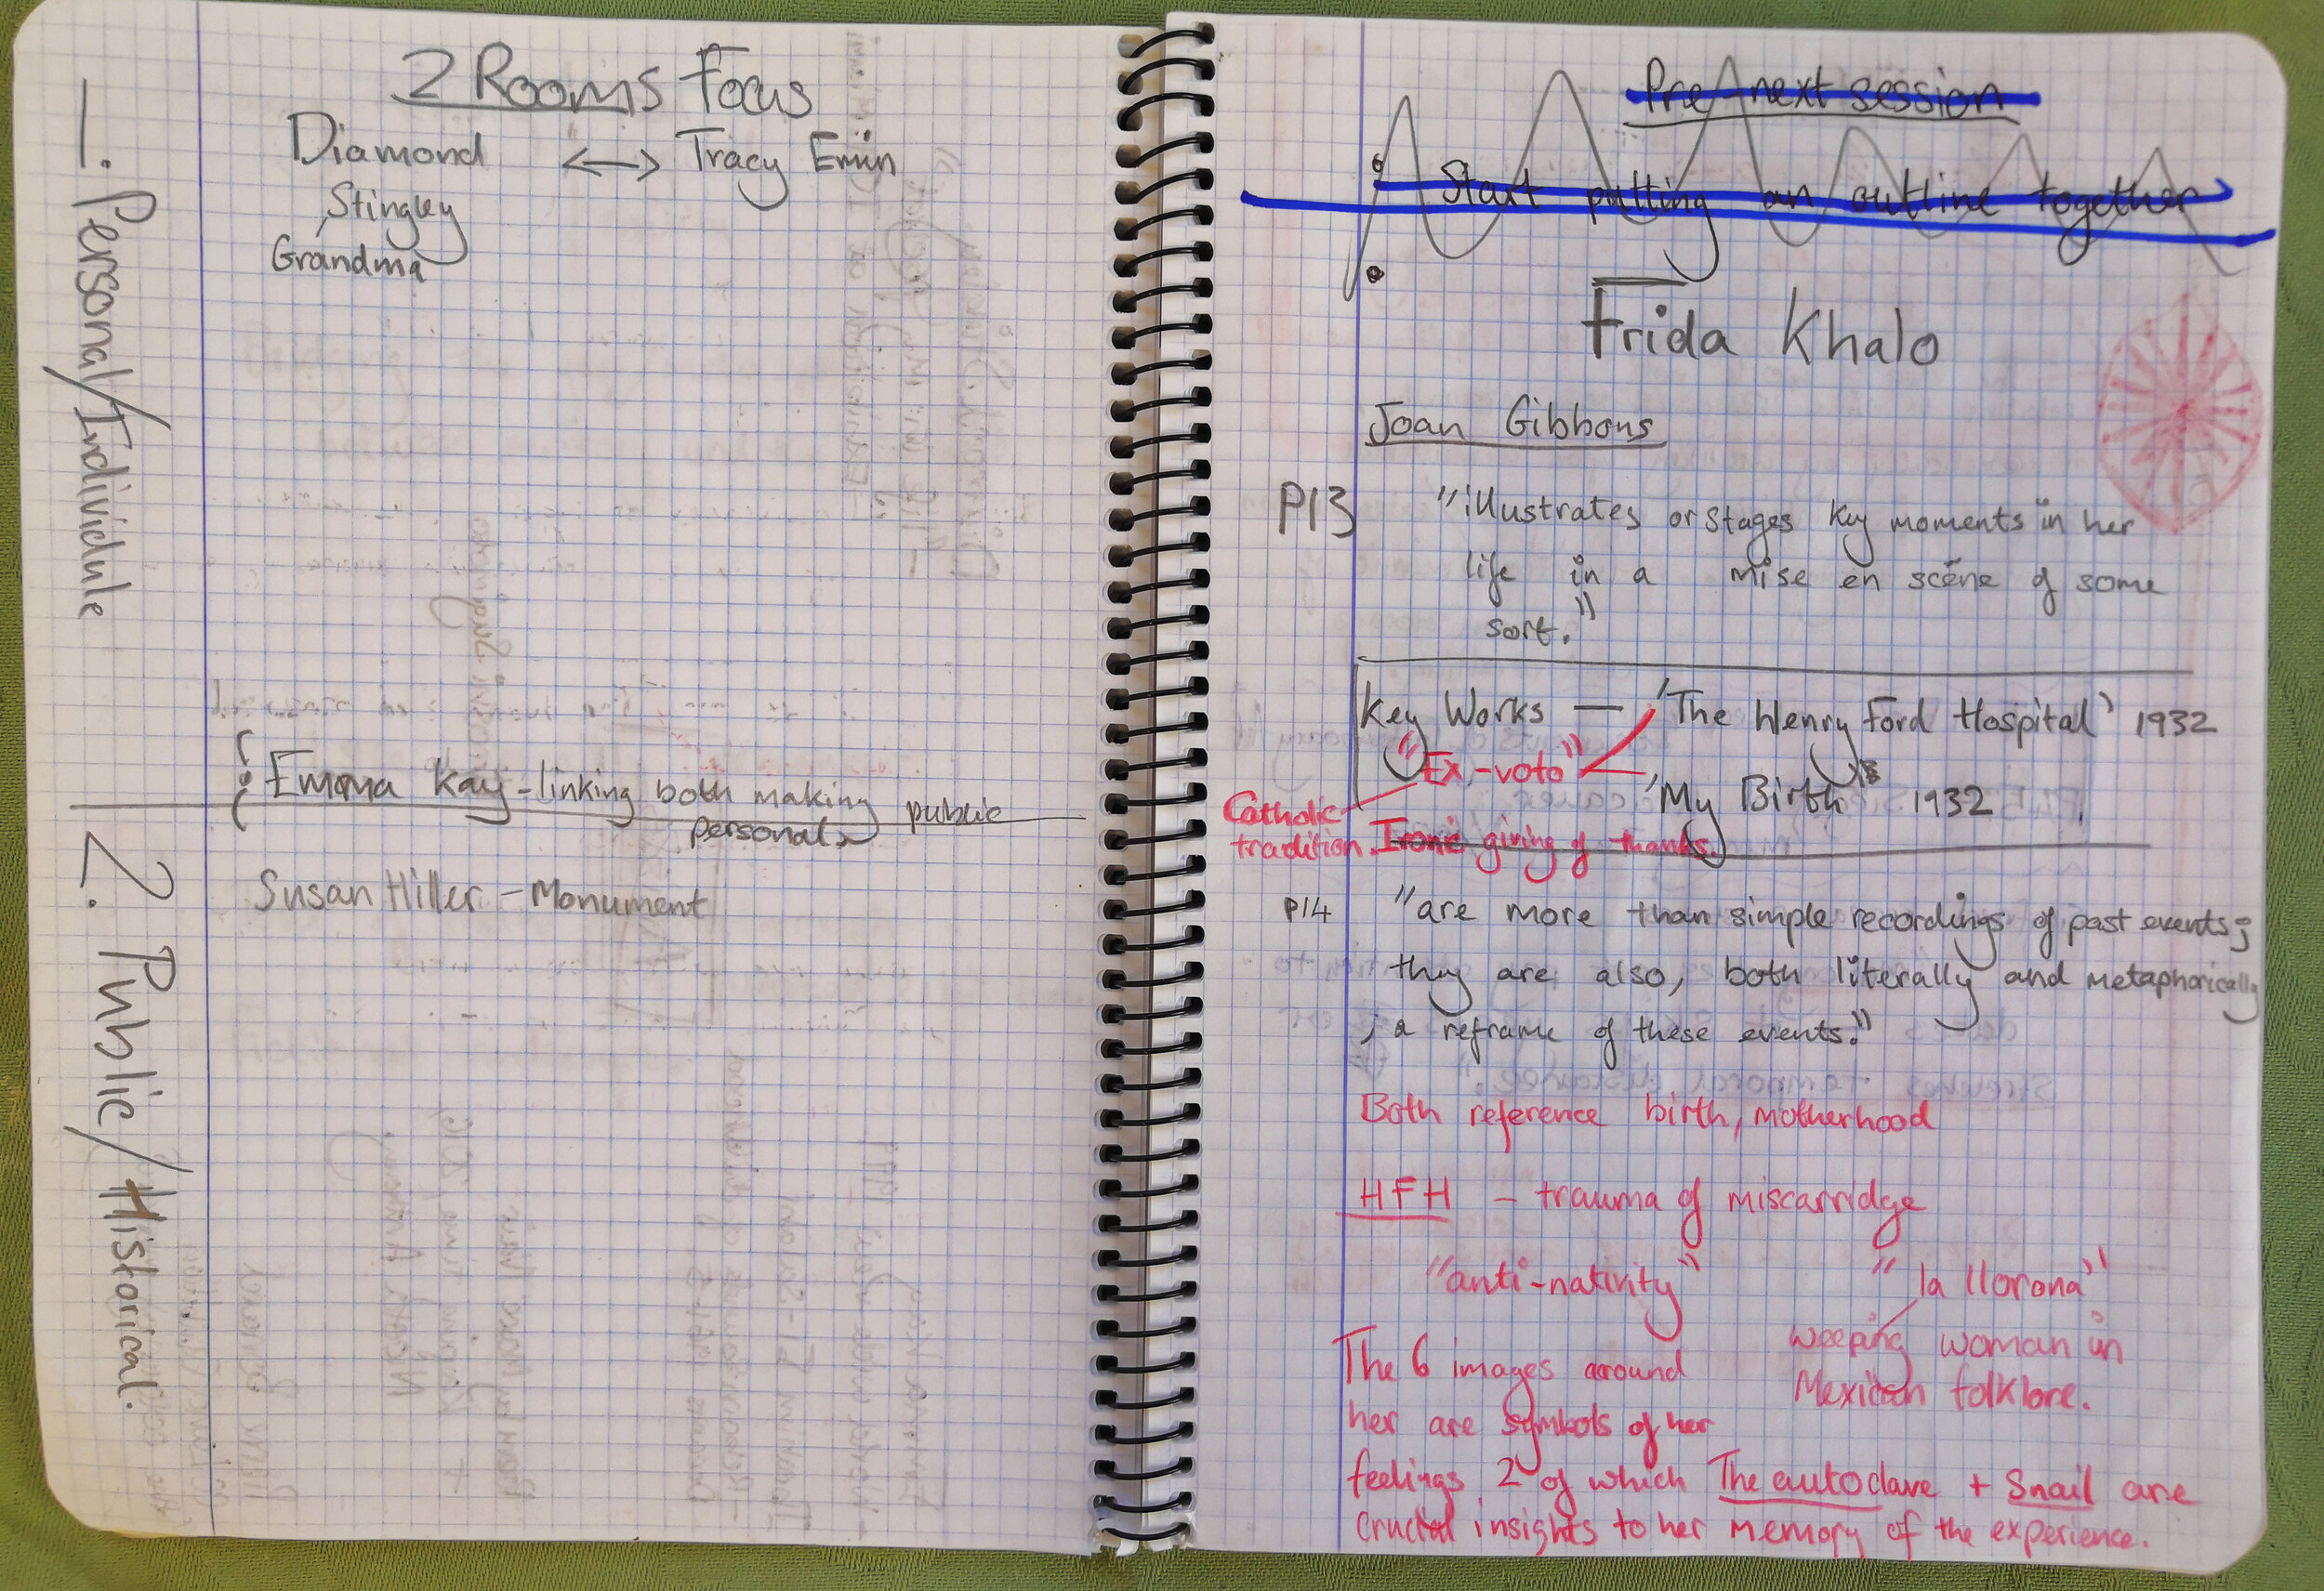 2 Rooms Focus
Diamond <-> Tracy Emin
Stingley
Grandma
1. Personal/Individule
Emma Kay - linking both making public
personal
2. Public/Historical.
Susan Hiller - Monument
Pre-next session
Start putting an outline together
Frida Khalo
Joan Gibbons
P13 "illustrates or stages key moments in her
life in a mise en scéne of some
sort."
Key Works — 'The Henry Ford Hospital' 1932
"Ex-voto"
'My Birth' 1932
Catholic
tradition. Ironic giving of thanks.
P14 "are more than simple recordings of past events;
they are also, both literally and metaphorically
, a reframe of these events."
Both reference birth, motherhood
HFH - trauma of miscarridge
"anti-nativity" "la llorona"
weeping woman in
Mexican folklore.
The 6 images around
her are symbols of her
feelings 2 of which The autoclave + Snail are
crucial insights to her memory of the experience.